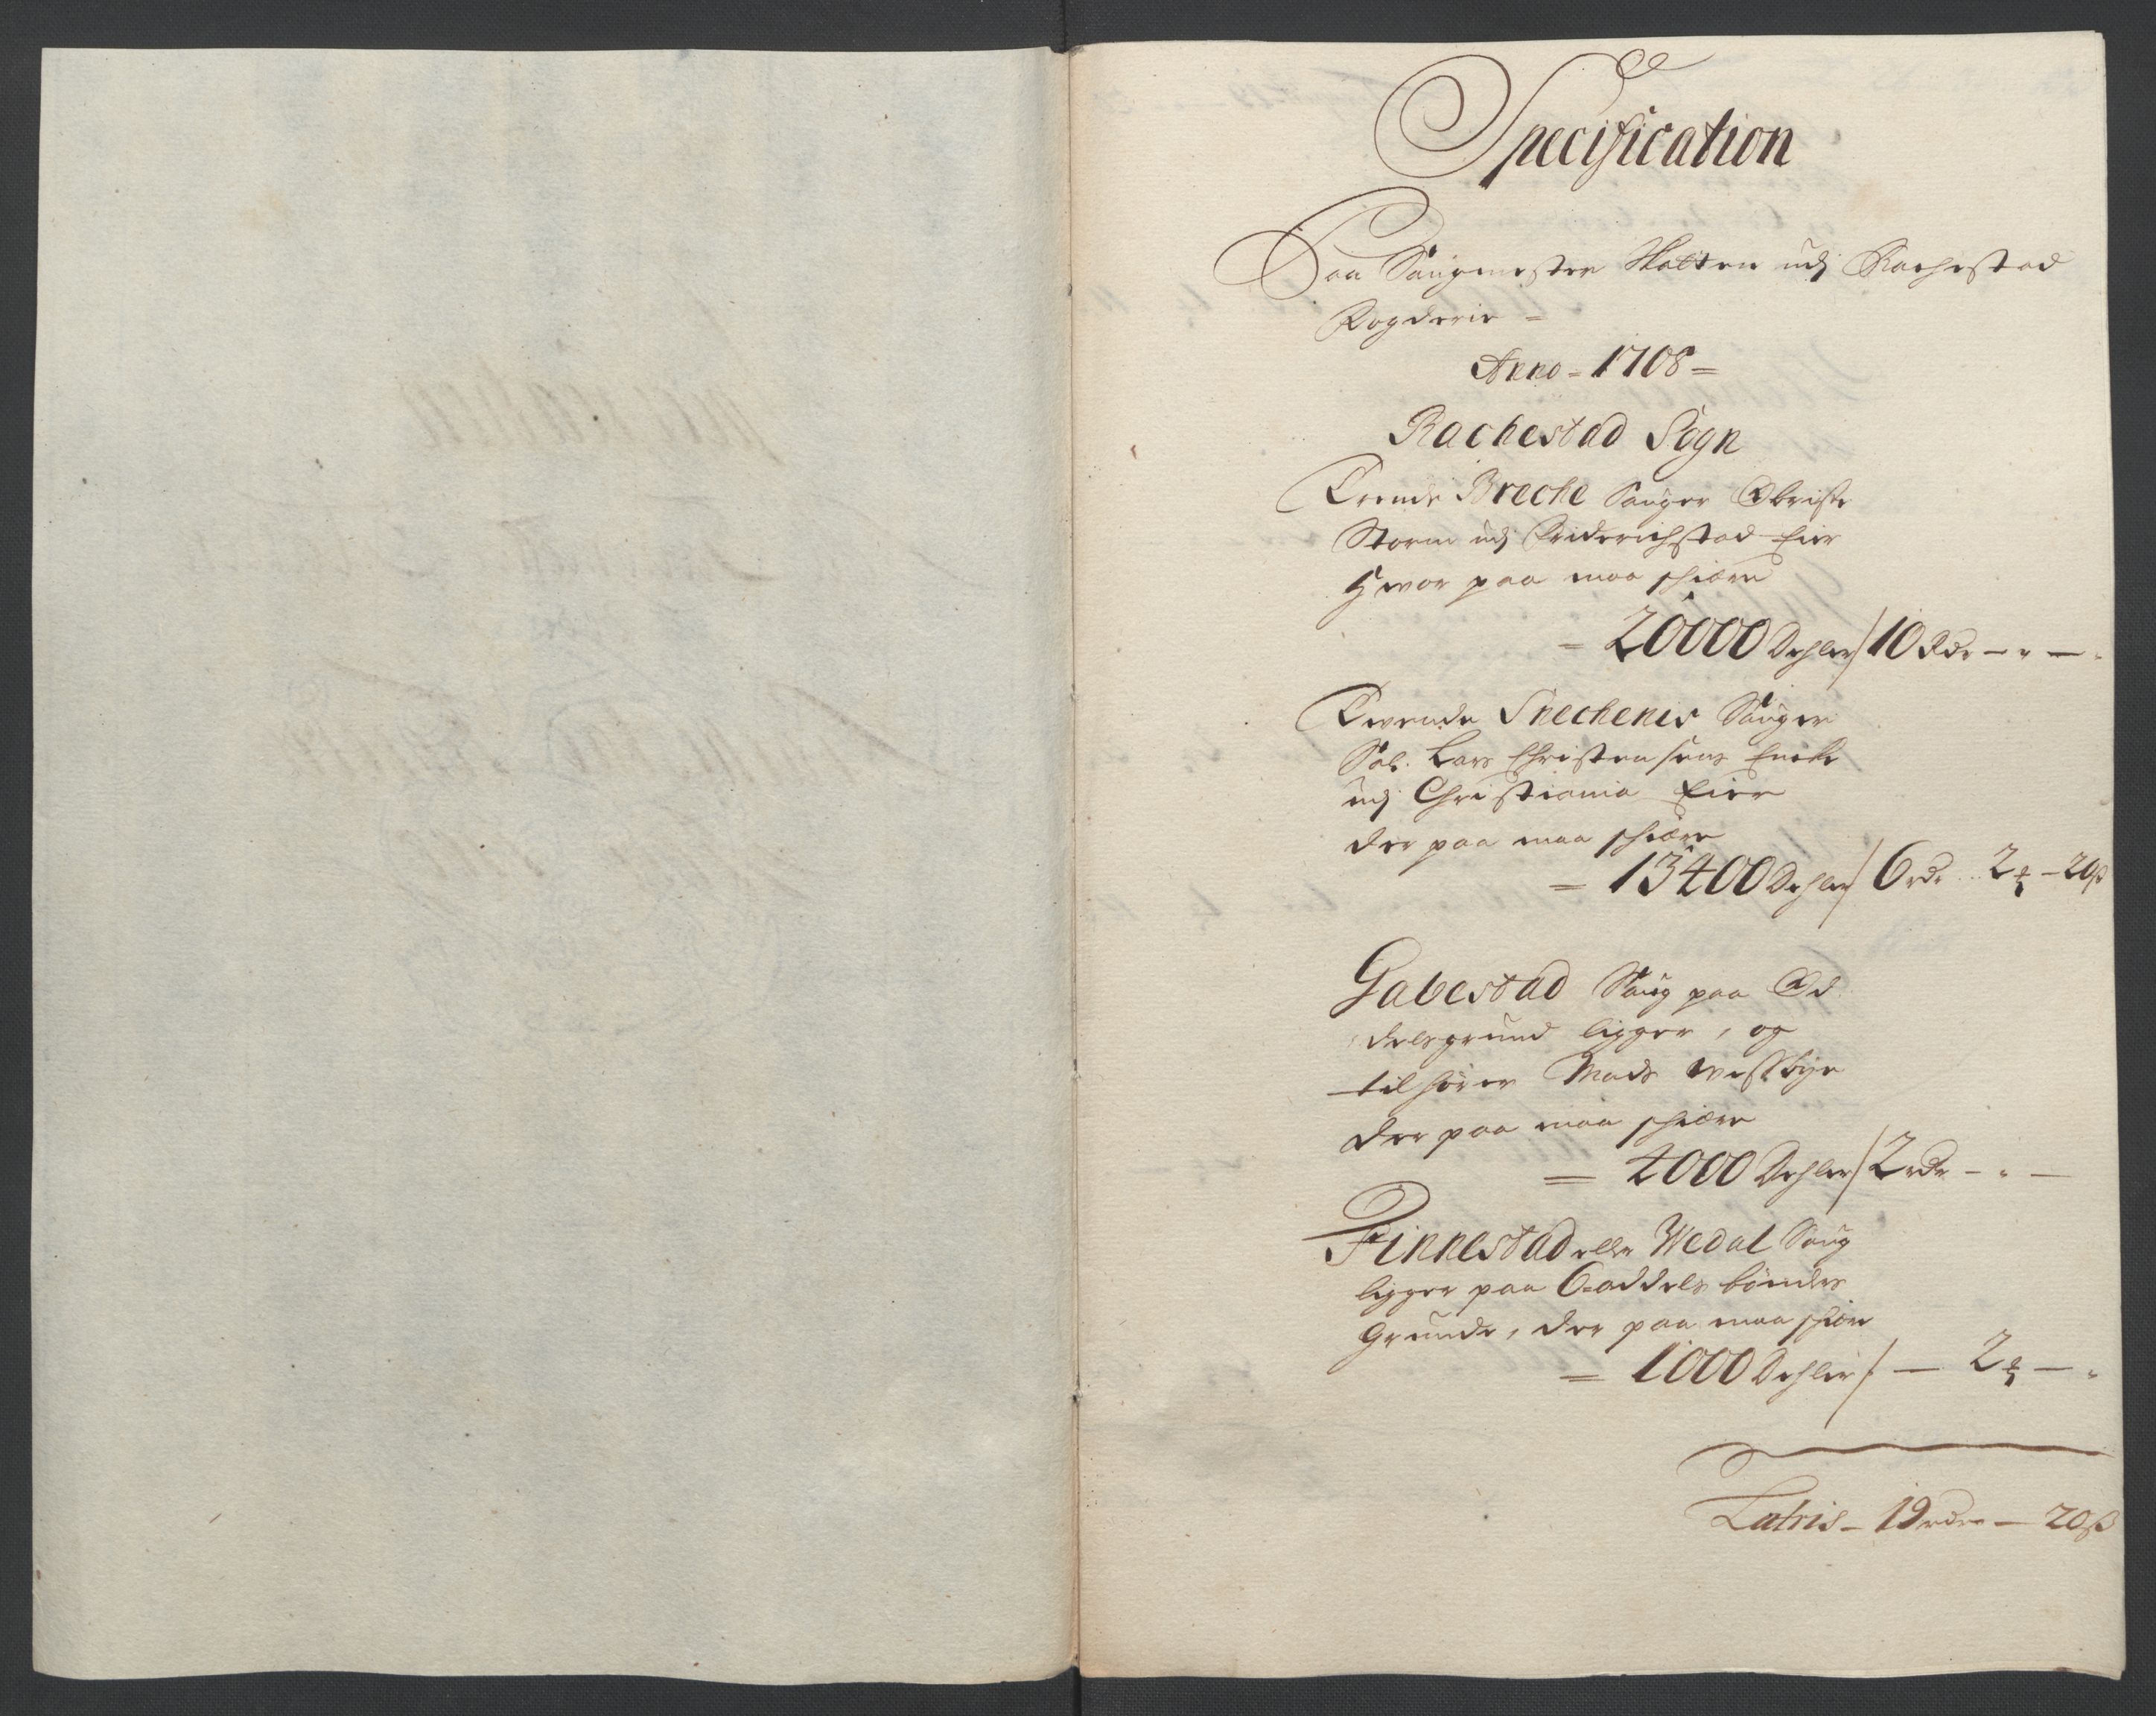 Specification
Paa Saugmester Skatten udj Rachestad
Fogderie =
Anno = 1708 =
Rachestad Sogn
Tvende Breche Sauger Obriste
Storm udj Friderichstad Eier
hvor paa maa schiære
= 20000 Dehler / 10 Rdr - " -
Tvende Snechenes Sauger
Sal. Lars Christensens Encke
udj Christiania Eier
der paa maa schiære
= 13400 Dehler / 6 rdr 2 ʒ - 20 ß
Gabestad Saug paa Od
delsgrund ligger, og
tilhører Mads Westbye
der paa maa schiære
= 4000 Dehler / 2 rdr - " -
Finnestad eller Wedal Saug
ligger paa Oddels bønders
Grunde, der paa maa schiære
= 1000 Dehler / - 2 ʒ - "
Latris - 19 rdr - 20 ß